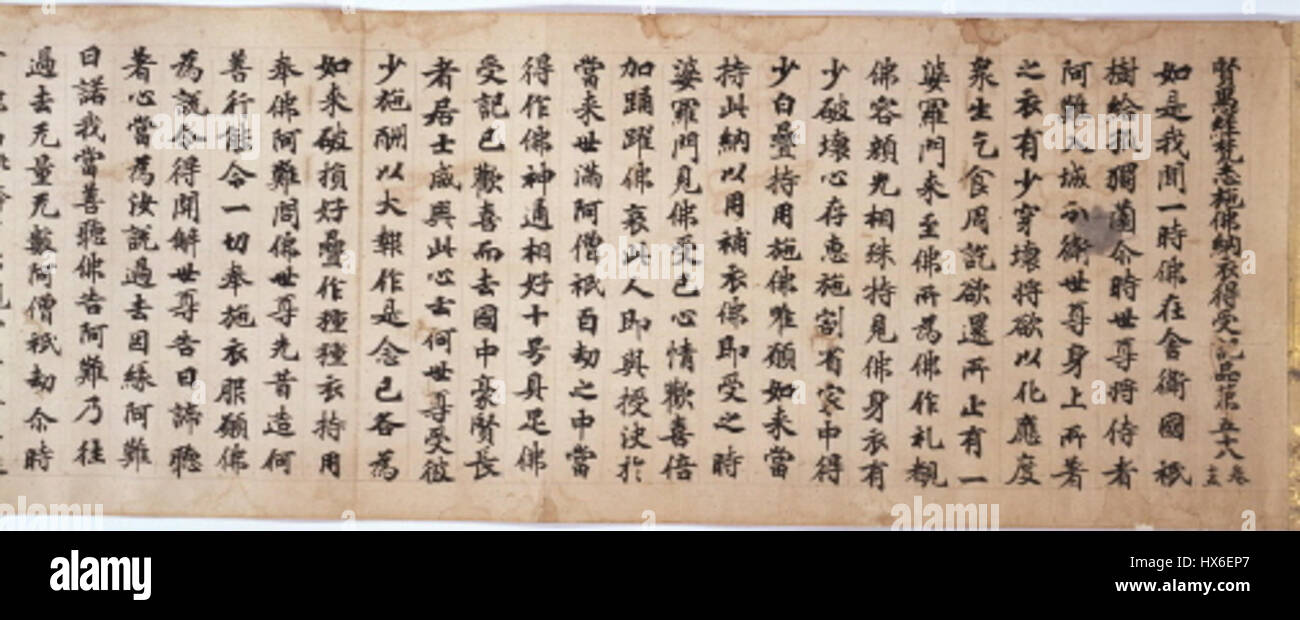 賢愚經梵志施佛納衣得受記品第五十八 卷十五
如是我聞一時佛在舍衛國祇
樹給孤獨薗尒時世尊將侍者
阿難入城分衛世尊身上所著
之衣有少穿壞將欲以化應度
眾生乞食周訖欲還所止有一
婆羅門来至佛所為佛作礼覩
佛容顏光相殊特見佛身衣有
少破壞心存恵施割省家中得
少白疊持用施佛唯願如来當
持此納以用補衣佛即受之時
婆羅門見佛受已心情歡喜倍
加踊躍佛哀此人即與授决於
當来世滿阿僧祇百劫之中當
得作佛神通相好十号具足佛
受記已歡喜而去國中豪賢長
者居士咸興此心云何世尊受彼
少施酬以大報作是念已各為
如来破損好疊作種種衣持用
奉佛阿難問佛世尊先昔造何
善行能令一切奉施衣服願佛
為說令得開解世尊告曰諦聽
著心當為汝說過去因緣阿難
曰諾我當善聽佛告阿難乃往
過去无量无數阿僧祇劫尒時
alamy
HX6EP7